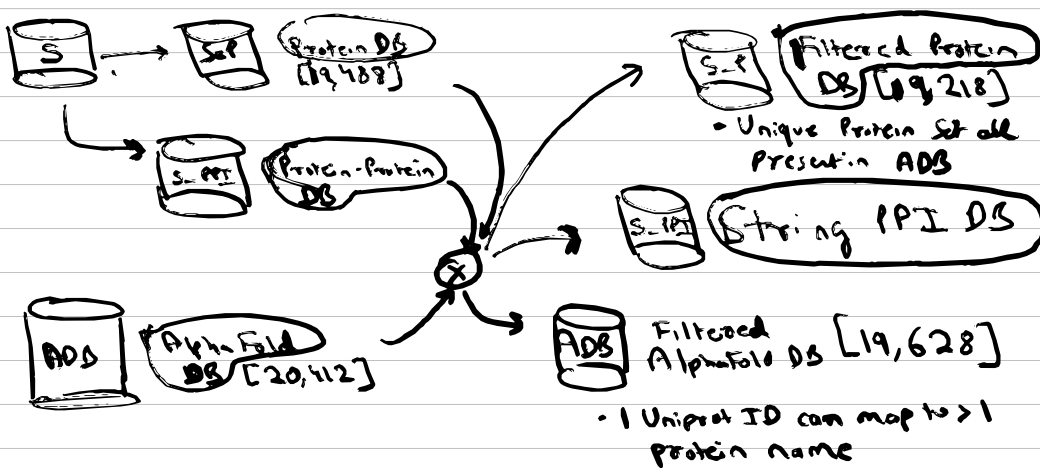 S
S_P
Protein DB
[19,488]
S_PPI
Protein-Protein
DB
X
ADB
AlphaFold
DB [20,412]
S_P
Filtered Protein
DB [19,218]
• Unique Protein Set all
Present in ADB
S_PPI
String PPI DB
ADB
Filtered
AlphaFold DB [19,628]
• 1 Uniprot ID can map to >1
protein name